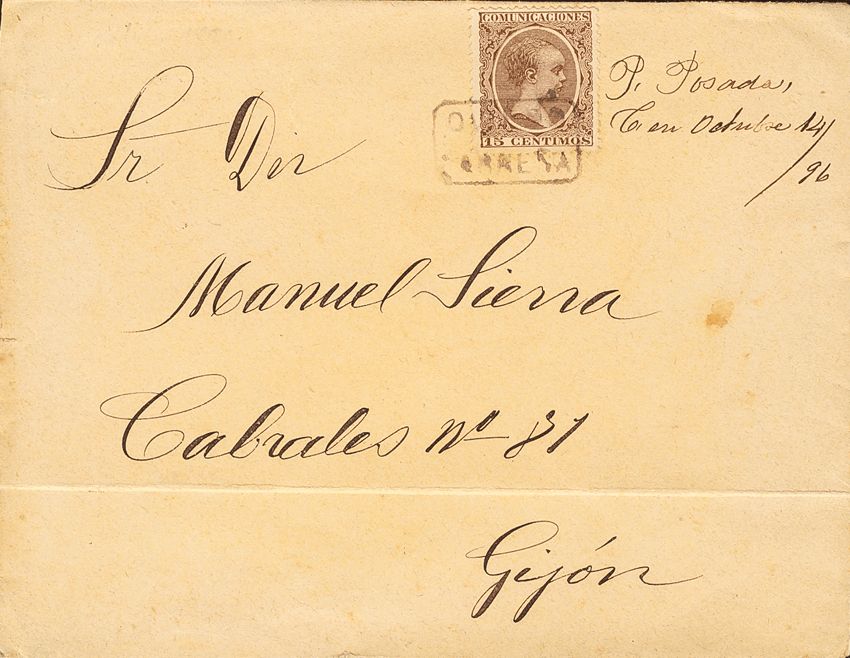 COMUNICACIONES
15 CENTIMOS
P. Posada,
C. en Octubre 14/
96
Sr. Dn
Manuel Sierra
Cabrales Nº 37
Gijón